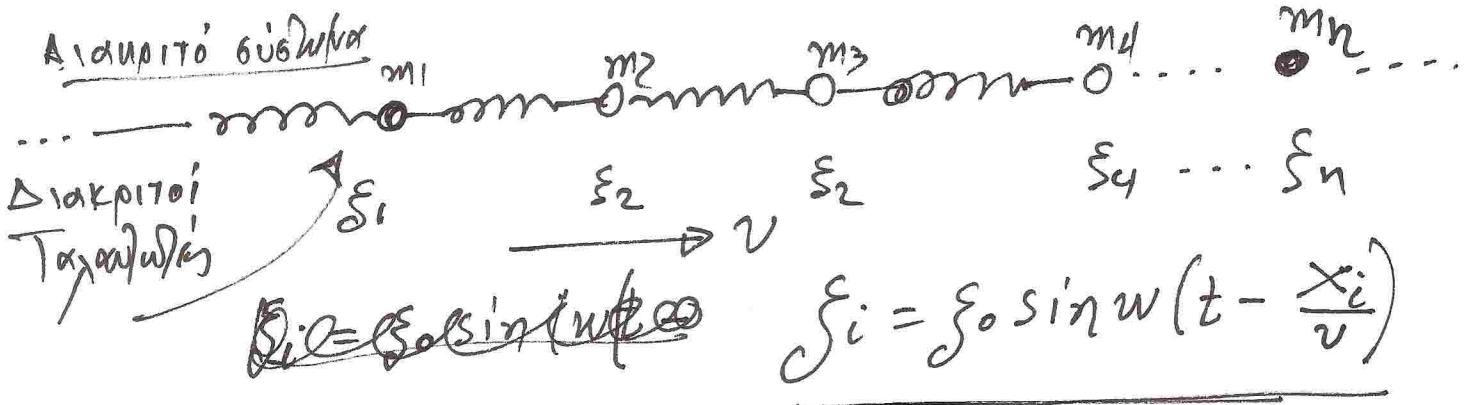 Διακριτό σύστημα
m1 m2 m3 m4 mn
... ..... .....
Διακριτοί
Ταλαντωτές
ξ1 ξ2 ξ2 ξ4 ... ξn
υ
ξi = ξ0 sin w(t - xi/υ)